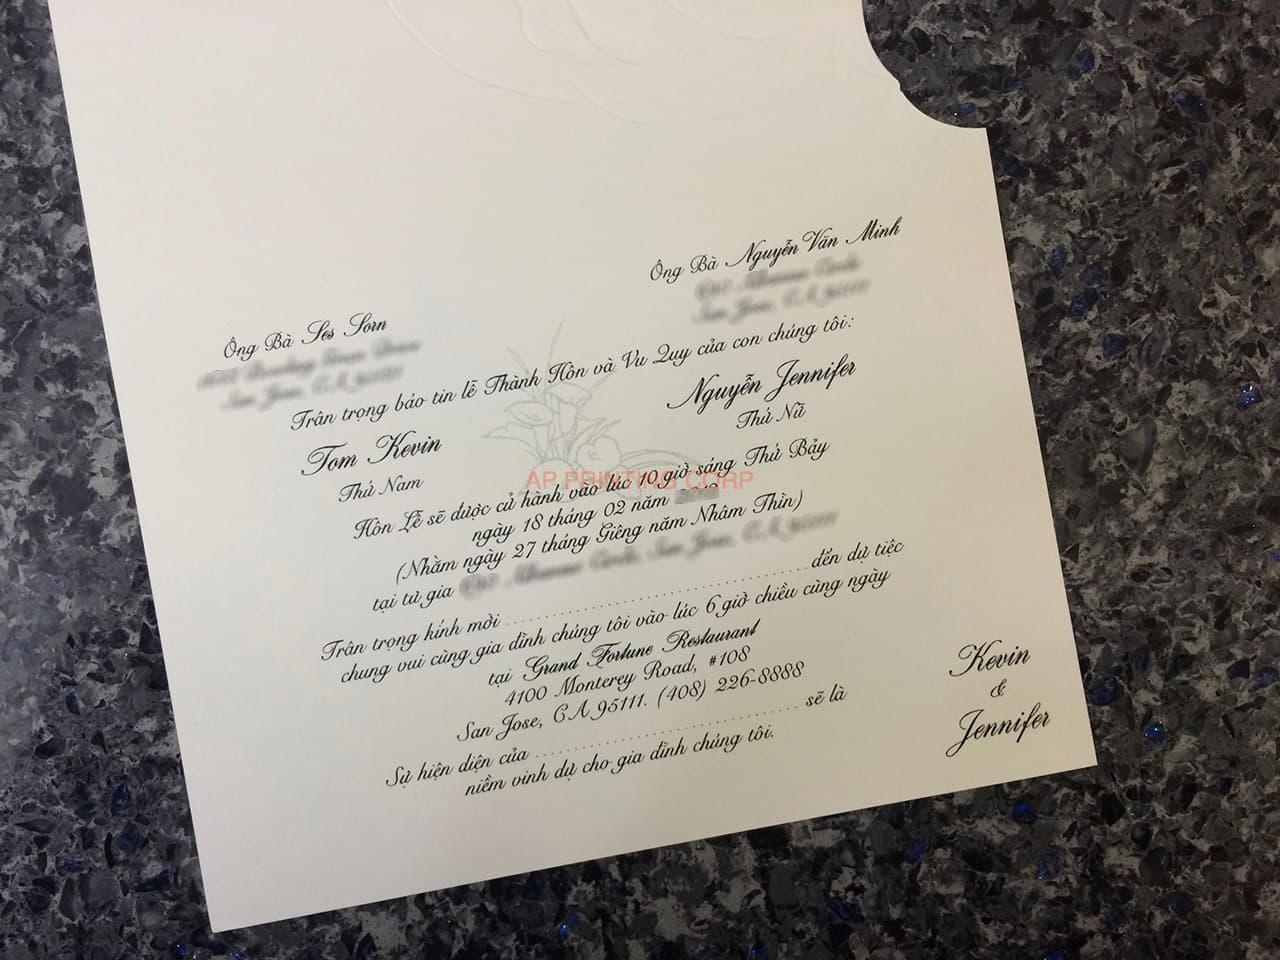 Ông Bà Ses Sorn
San Jose, CA
Ông Bà Nguyễn Văn Minh
San Jose, CA
Trân trọng báo tin lễ Thành Hôn và Vu Quy của con chúng tôi:
Tom Kevin
Thứ Nam
Nguyễn Jennifer
Thứ Nữ
AP PRINTING CORP
Hôn Lễ sẽ được cử hành vào lúc 10 giờ sáng Thứ Bảy
ngày 18 tháng 02 năm
(Nhằm ngày 27 tháng Giêng năm Nhâm Thìn)
tại tư gia San Jose, CA
Trân trọng kính mời ........................................ đến dự tiệc
chung vui cùng gia đình chúng tôi vào lúc 6 giờ chiều cùng ngày
tại Grand Fortune Restaurant
4100 Monterey Road, #108
San Jose, CA 95111. (408) 226-8888
Sự hiện diện của ........................................ sẽ là
niềm vinh dự cho gia đình chúng tôi.
Kevin
&
Jennifer